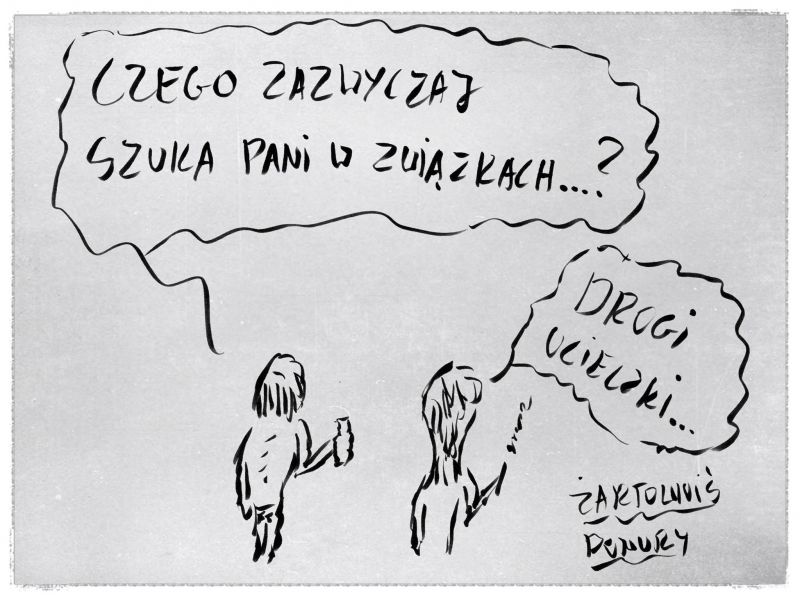 CZEGO ZAZWYCZAJ
SZUKA PANI W ZWIĄZKACH....?
DROGI
UCIECZKI...
ŻARTOWNIŚ
PONURY